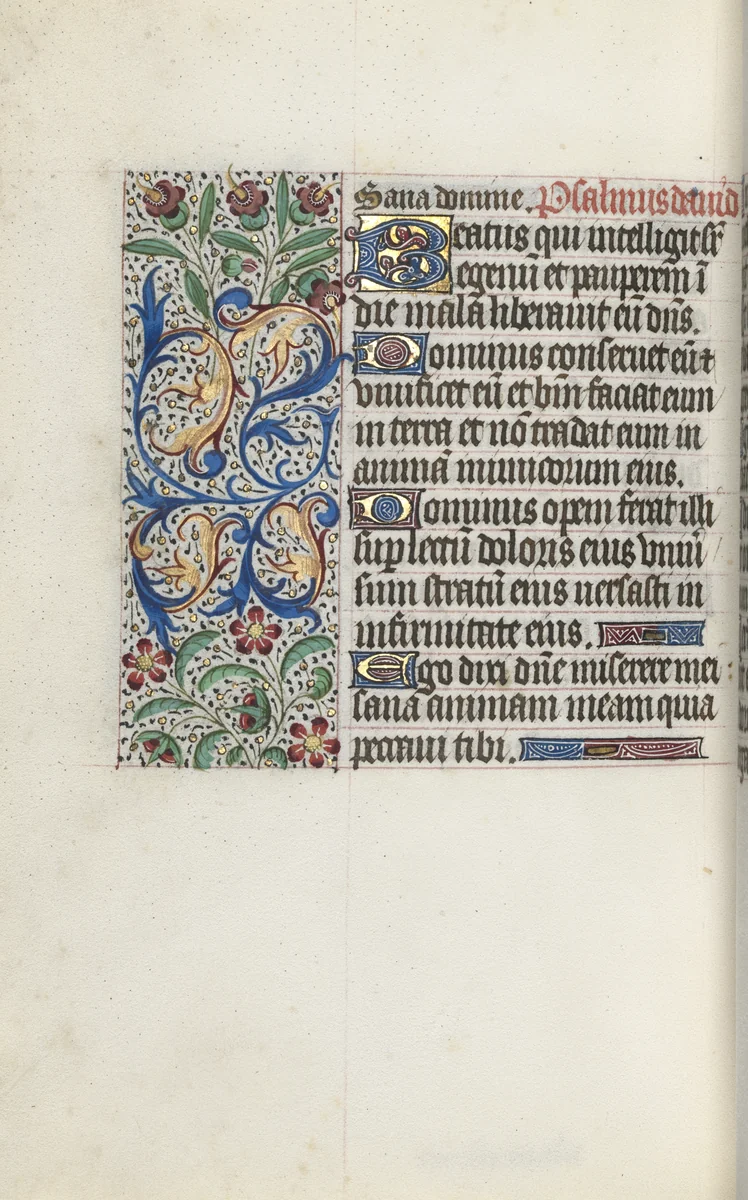 Sana domine. Psalmus dauid
Beatus qui intelligit sr̄
egenū et pauperem ī
die mala liberauit eū dn̄s.
Dominus conseruet eū ⁊
viuificet eū et btm̄ faciat eum
in terra et nō tradat eum in
animā inimicorum eius.
Dominus opem ferat illi
sup lectū doloris eius vniū
sum stratū eius uersasti in
infirmitate eius.
Ego dixi dn̄e miserere mei
sana animam meam quia
peccaui tibi.